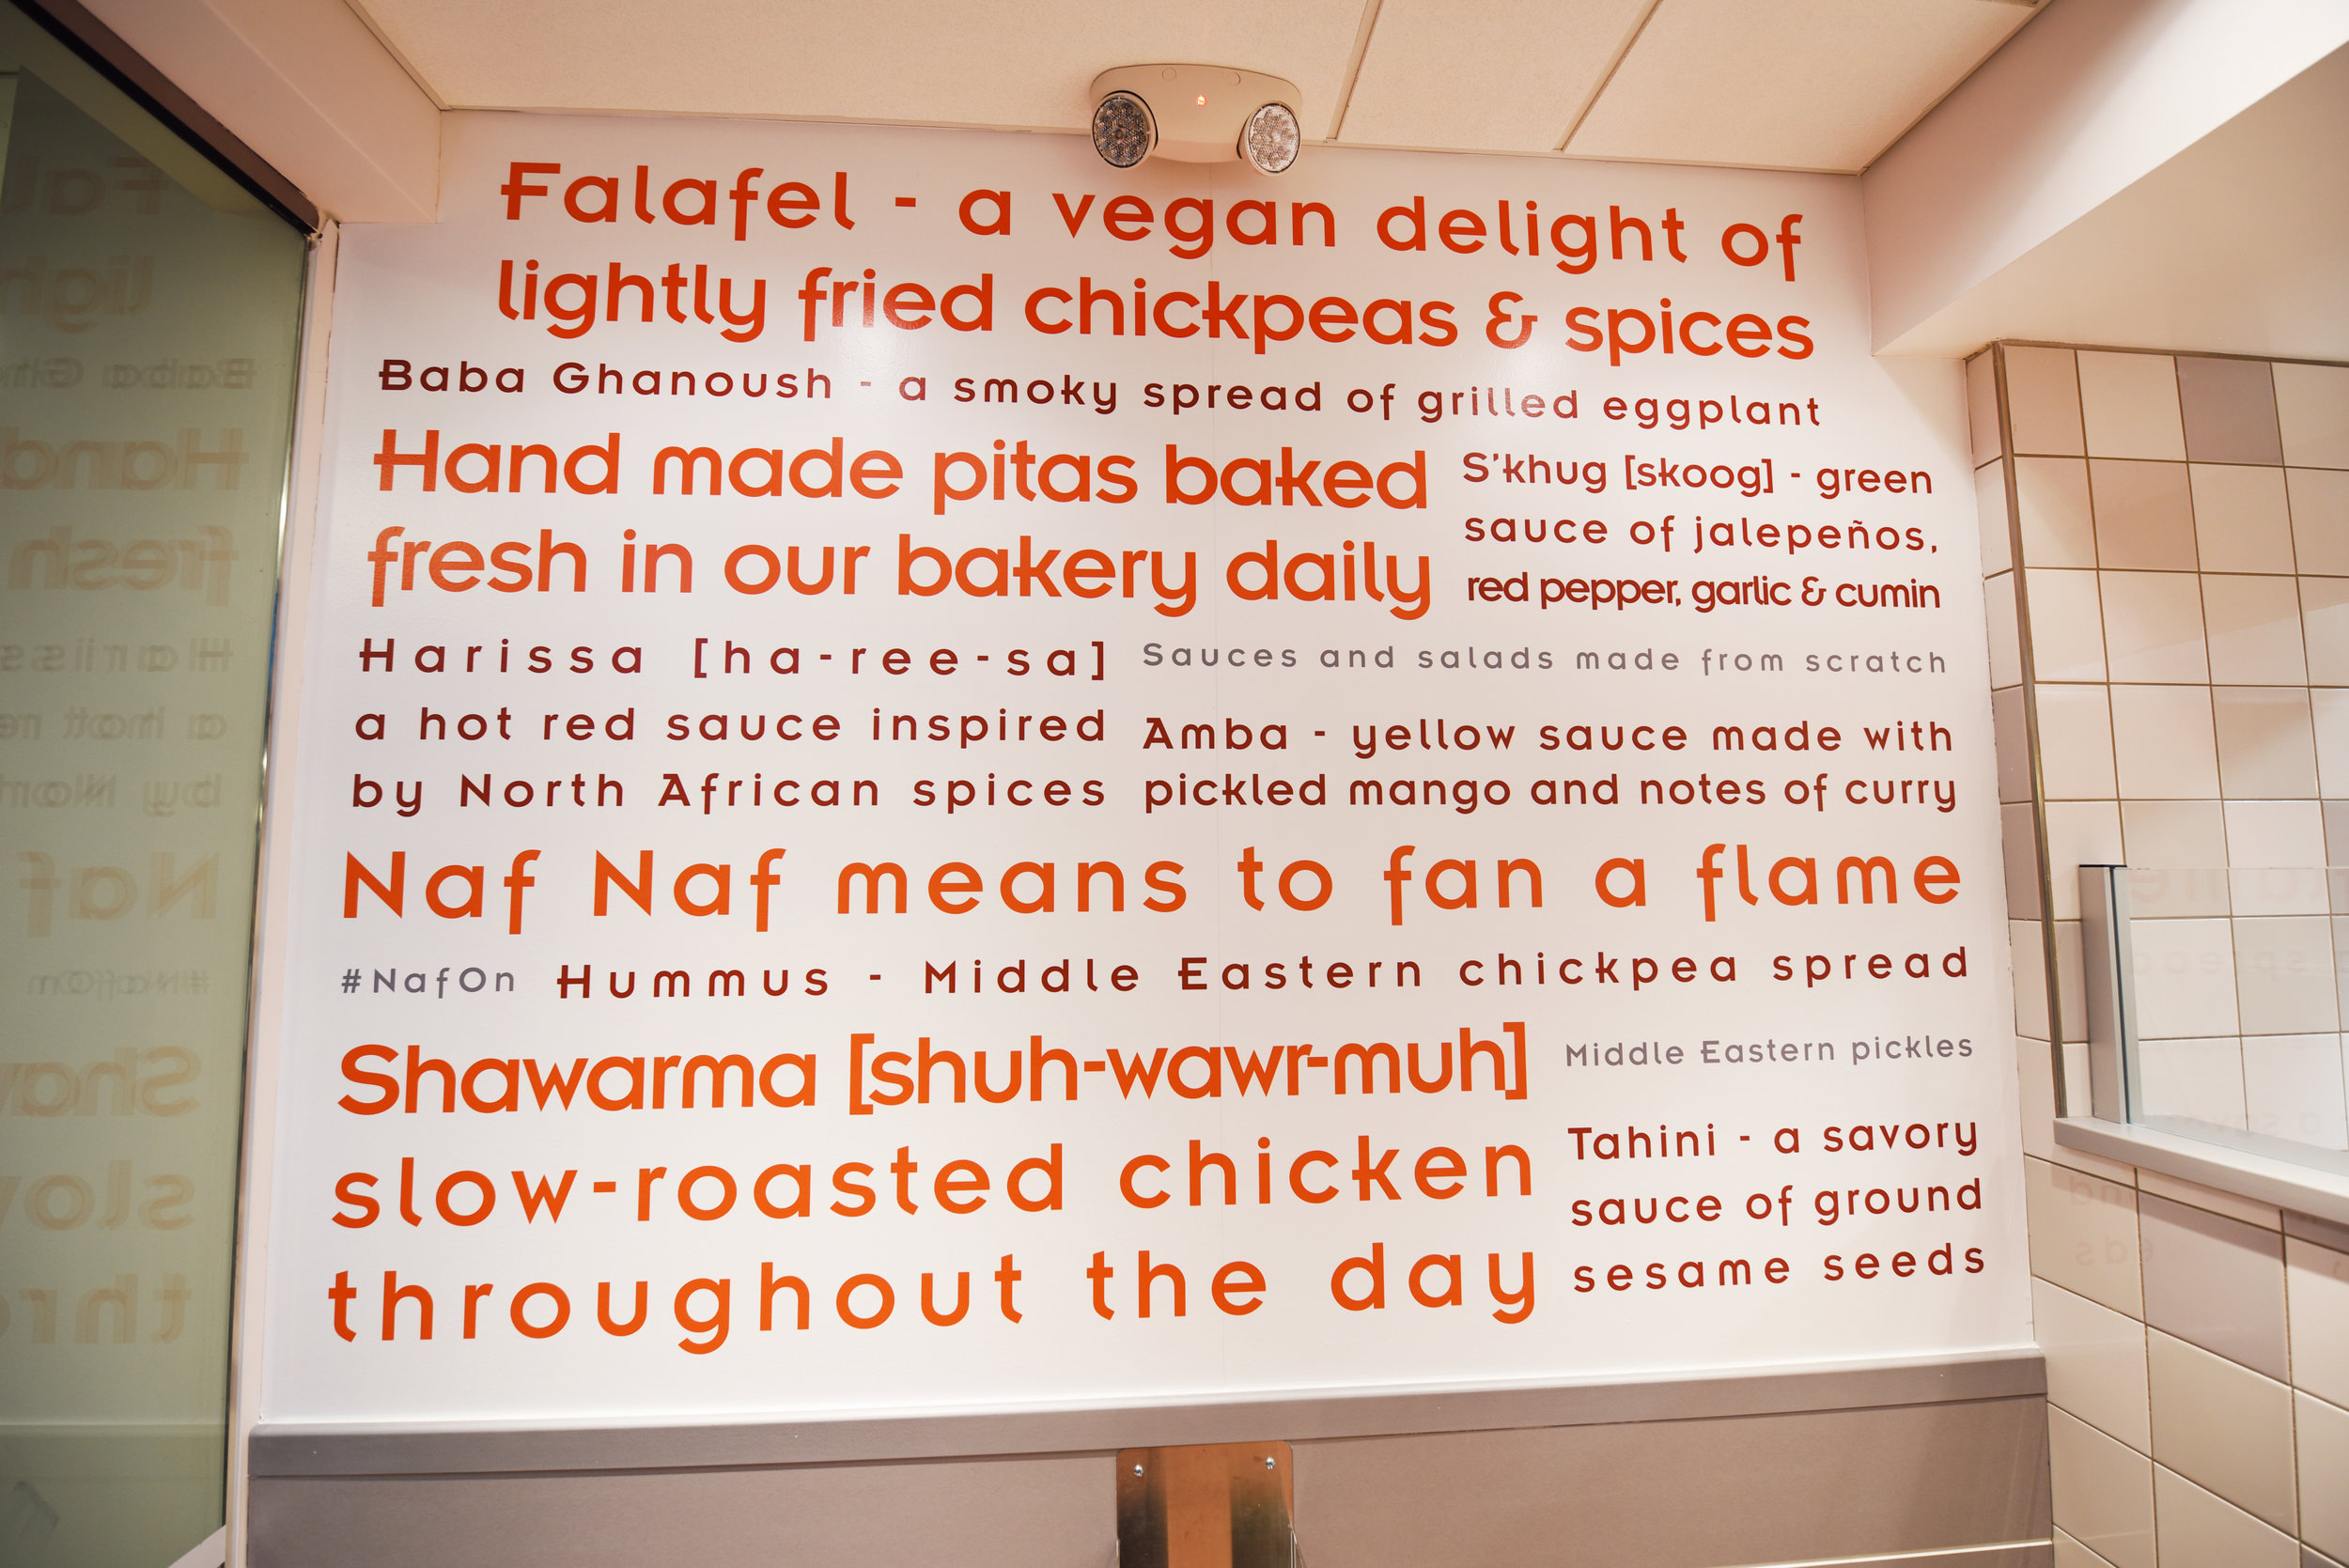 Falafel - a vegan delight of
lightly fried chickpeas & spices
Baba Ghanoush - a smoky spread of grilled eggplant
Hand made pitas baked
fresh in our bakery daily
S'khug [skoog] - green
sauce of jalepeños,
red pepper, garlic & cumin
Harissa [ha-ree-sa]
a hot red sauce inspired
by North African spices
Sauces and salads made from scratch
Amba - yellow sauce made with
pickled mango and notes of curry
Naf Naf means to fan a flame
#NafOn
Hummus - Middle Eastern chickpea spread
Shawarma [shuh-wawr-muh]
slow-roasted chicken
throughout the day
Middle Eastern pickles
Tahini - a savory
sauce of ground
sesame seeds